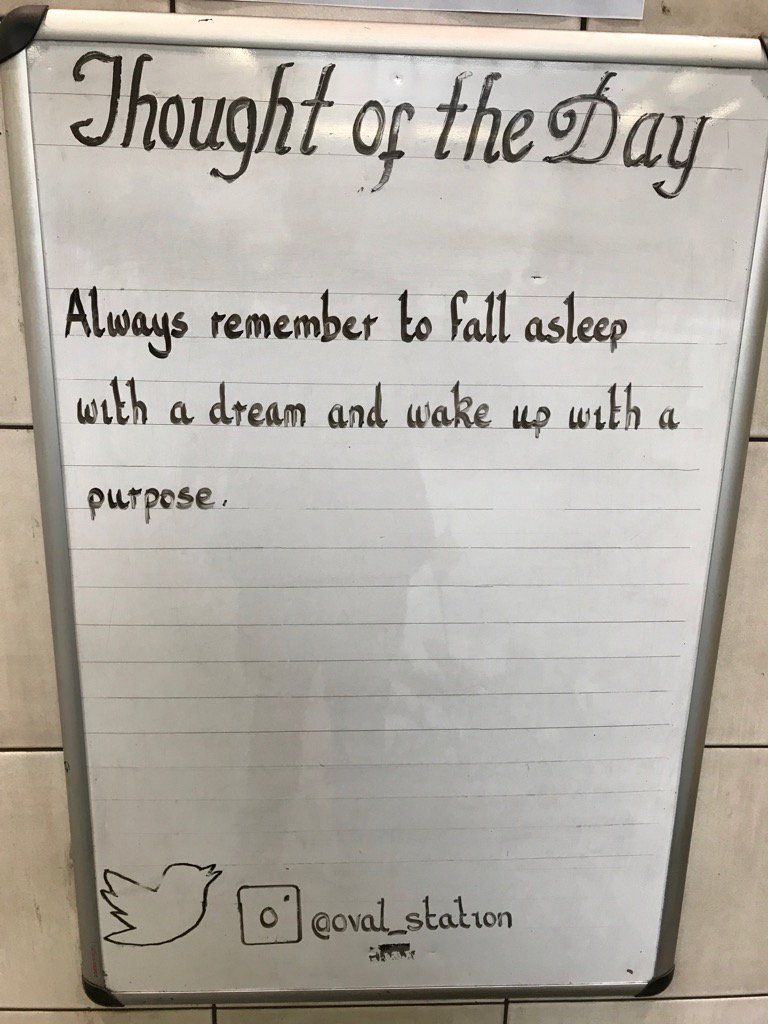 Thought of the Day
Always remember to fall asleep
with a dream and wake up with a
purpose.
@oval_station